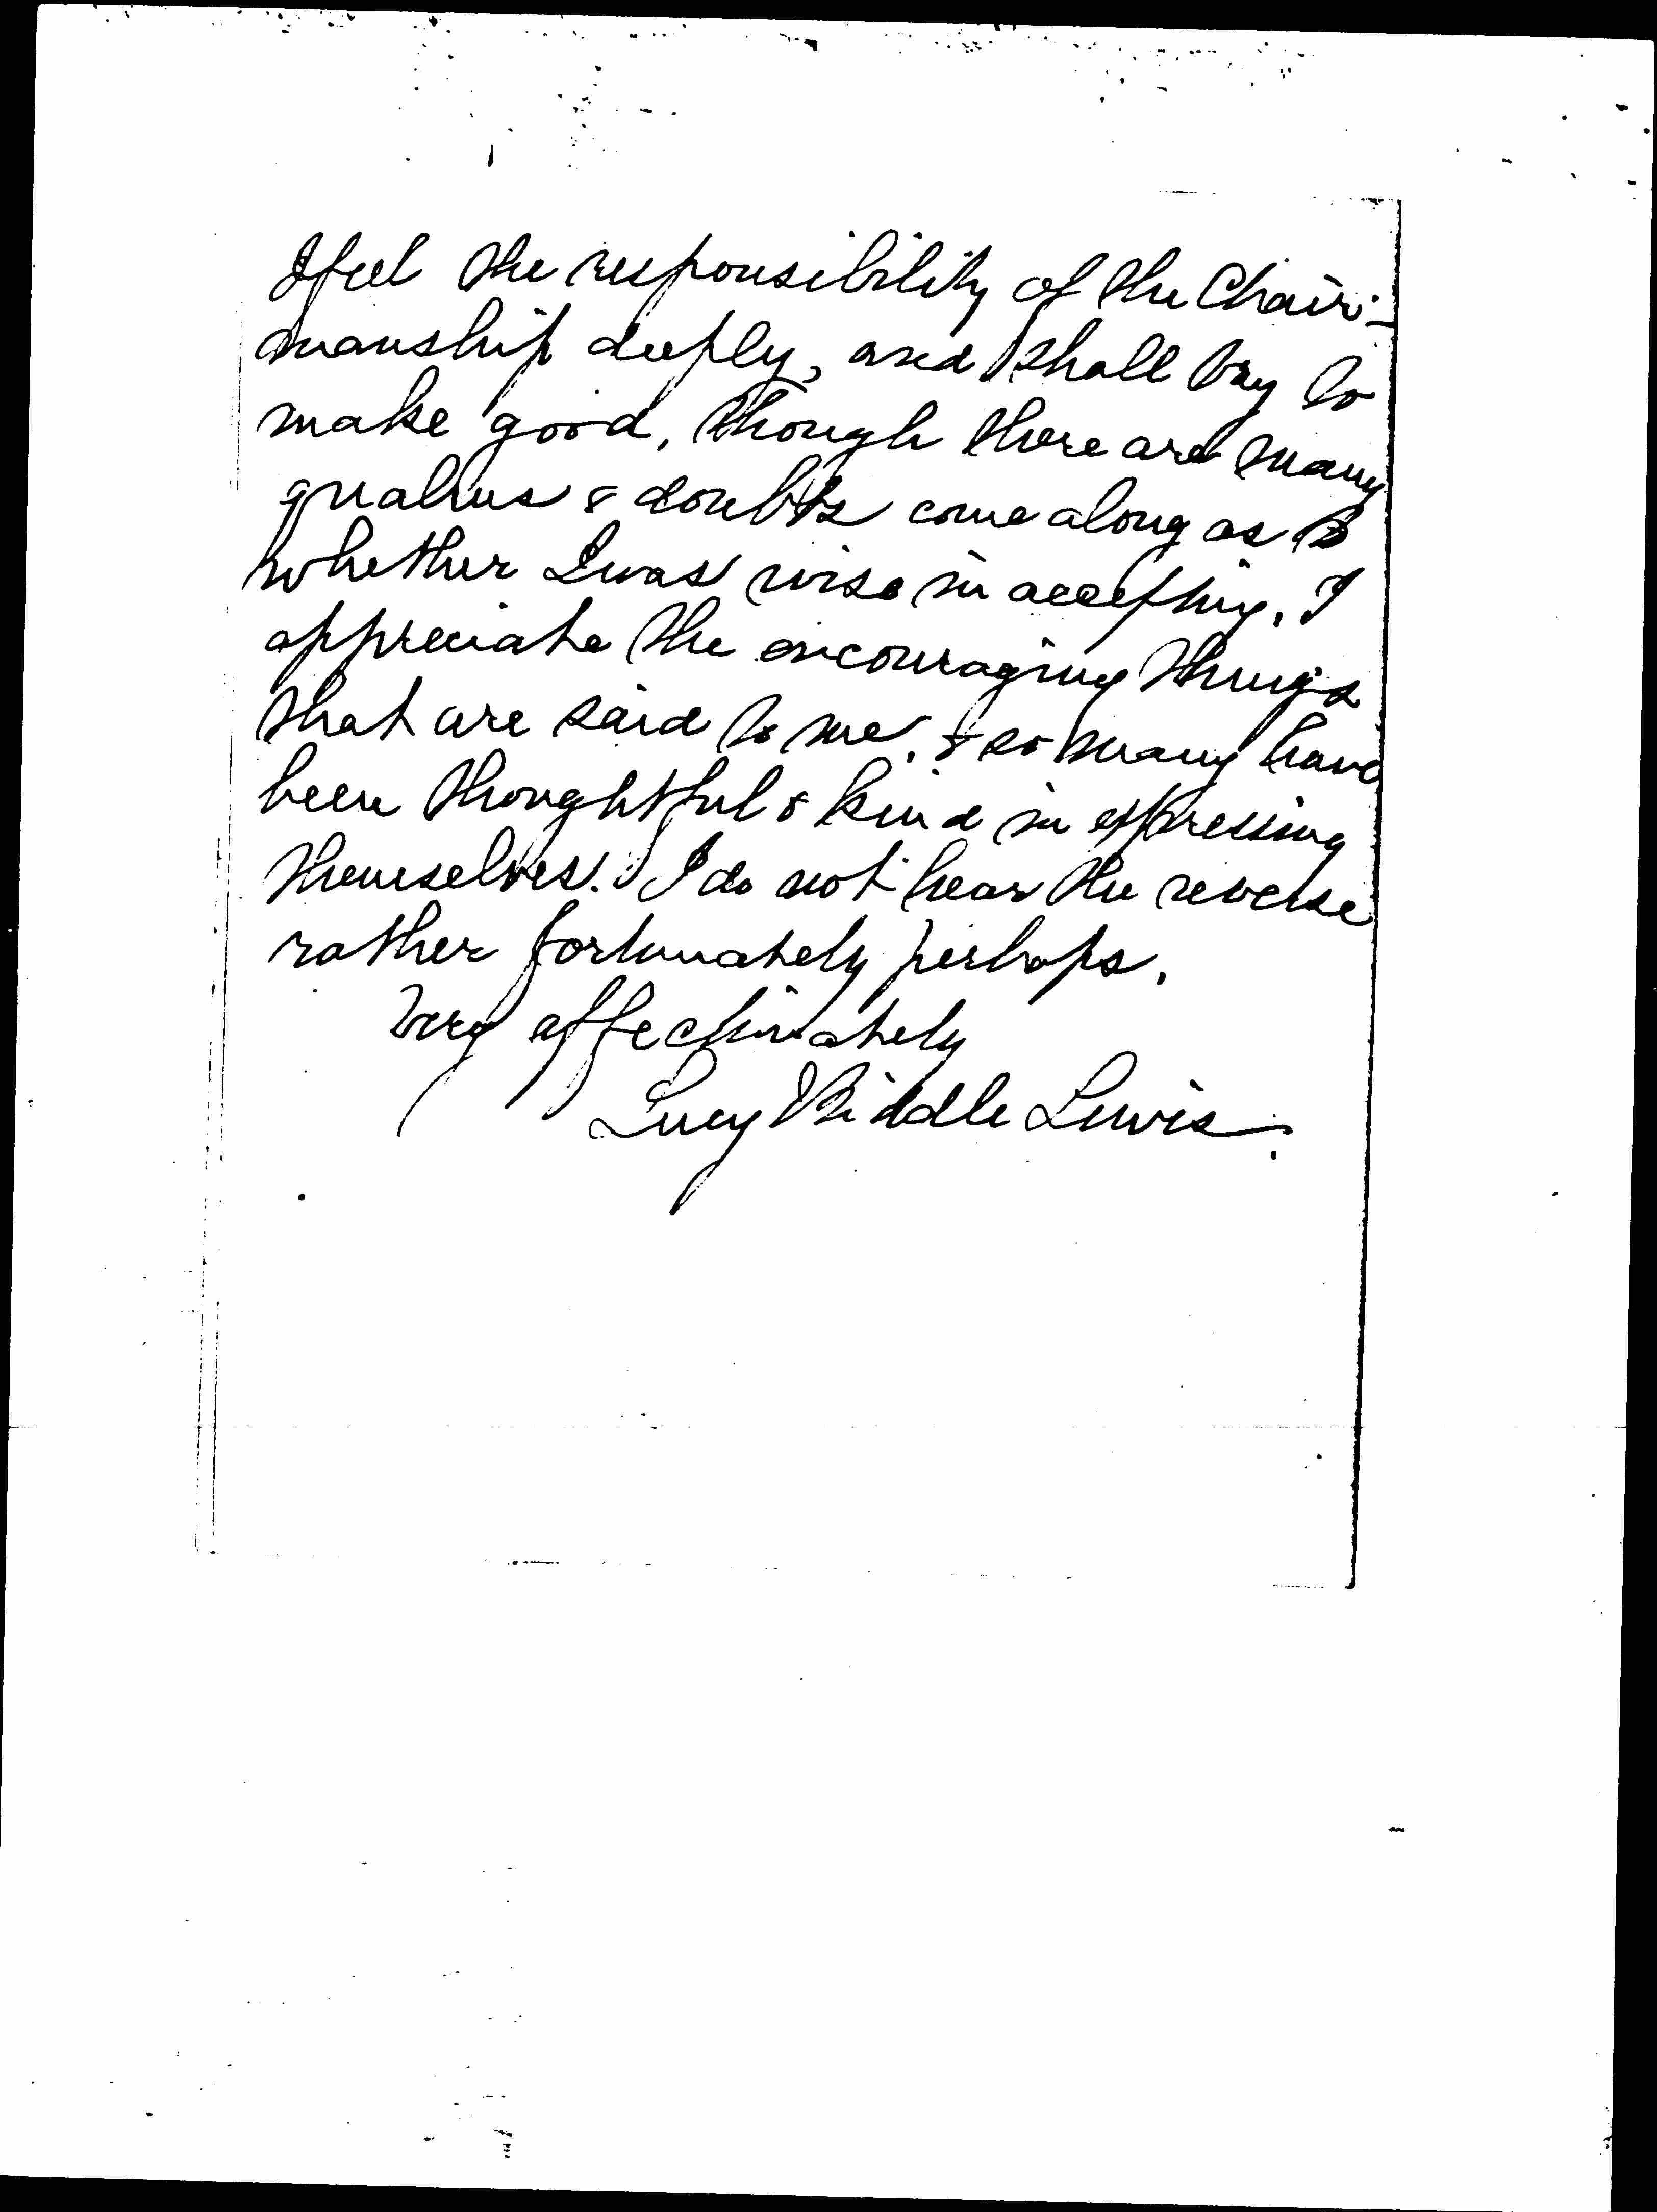 I feel the responsibility of the Chair-
manship deeply, and shall try to
make good, though there are many
qualms & doubts come along as to
whether I was wise in accepting. I
appreciate the encouraging things
that are said to me, & so many have
been thoughtful & kind in expressing
themselves. I do not hear the reverse
rather fortunately perhaps.
Very affectionately
Lucy Biddle Lewis.